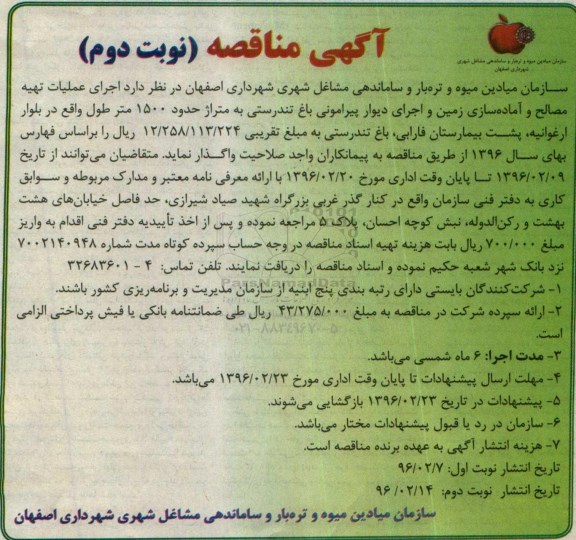 سازمان میادین میوه و تره‌بار و ساماندهی مشاغل شهری
شهرداری اصفهان
آگهی مناقصه (نوبت دوم)
سازمان میادین میوه و تره‌بار و ساماندهی مشاغل شهری شهرداری اصفهان در نظر دارد اجرای عملیات تهیه
مصالح و آماده‌سازی زمین و اجرای دیوار پیرامونی باغ تندرستی به متراژ حدود ۱۵۰۰ متر طول واقع در بلوار
ارغوانیه، پشت بیمارستان فارابی، باغ تندرستی به مبلغ تقریبی ۱۲/۲۵۸/۱۱۳/۲۲۴ ریال را براساس فهارس
بهای سال ۱۳۹۶ از طریق مناقصه به پیمانکاران واجد صلاحیت واگذار نماید. متقاضیان می‌توانند از تاریخ
۱۳۹۶/۰۲/۰۹ تا پایان وقت اداری مورخ ۱۳۹۶/۰۲/۲۰ با ارائه معرفی نامه معتبر و مدارک مربوطه و سوابق
کاری به دفتر فنی سازمان واقع در کنار گذر غربی بزرگراه شهید صیاد شیرازی، حد فاصل خیابان‌های هشت
بهشت و رکن‌الدوله، نبش کوچه احسان، پلاک ۵ مراجعه نموده و پس از اخذ تأییدیه دفتر فنی اقدام به واریز
مبلغ ۷۰۰/۰۰۰ ریال بابت هزینه تهیه اسناد مناقصه در وجه حساب سپرده کوتاه مدت شماره ۷۰۰۲۱۴۰۹۴۸
نزد بانک شهر شعبه حکیم نموده و اسناد مناقصه را دریافت نمایند. تلفن تماس: ۴ - ۳۲۶۸۳۶۰۱
۱- شرکت‌کنندگان بایستی دارای رتبه بندی پنج ابنیه از سازمان مدیریت و برنامه‌ریزی کشور باشند.
۲- ارائه سپرده شرکت در مناقصه به مبلغ ۴۳/۲۷۵/۰۰۰ ریال طی ضمانتنامه بانکی یا فیش پرداختی الزامی
است.
۳- مدت اجرا: ۶ ماه شمسی می‌باشد.
۴- مهلت ارسال پیشنهادات تا پایان وقت اداری مورخ ۱۳۹۶/۰۲/۲۳ می‌باشد.
۵- پیشنهادات در تاریخ ۱۳۹۶/۰۲/۲۳ بازگشایی می‌شوند.
۶- سازمان در رد یا قبول پیشنهادات مختار می‌باشد.
۷- هزینه انتشار آگهی به عهده برنده مناقصه است.
تاریخ انتشار نوبت اول: ۹۶/۰۲/۷
تاریخ انتشار نوبت دوم: ۹۶/۰۲/۱۴
سازمان میادین میوه و تره‌بار و ساماندهی مشاغل شهری شهرداری اصفهان